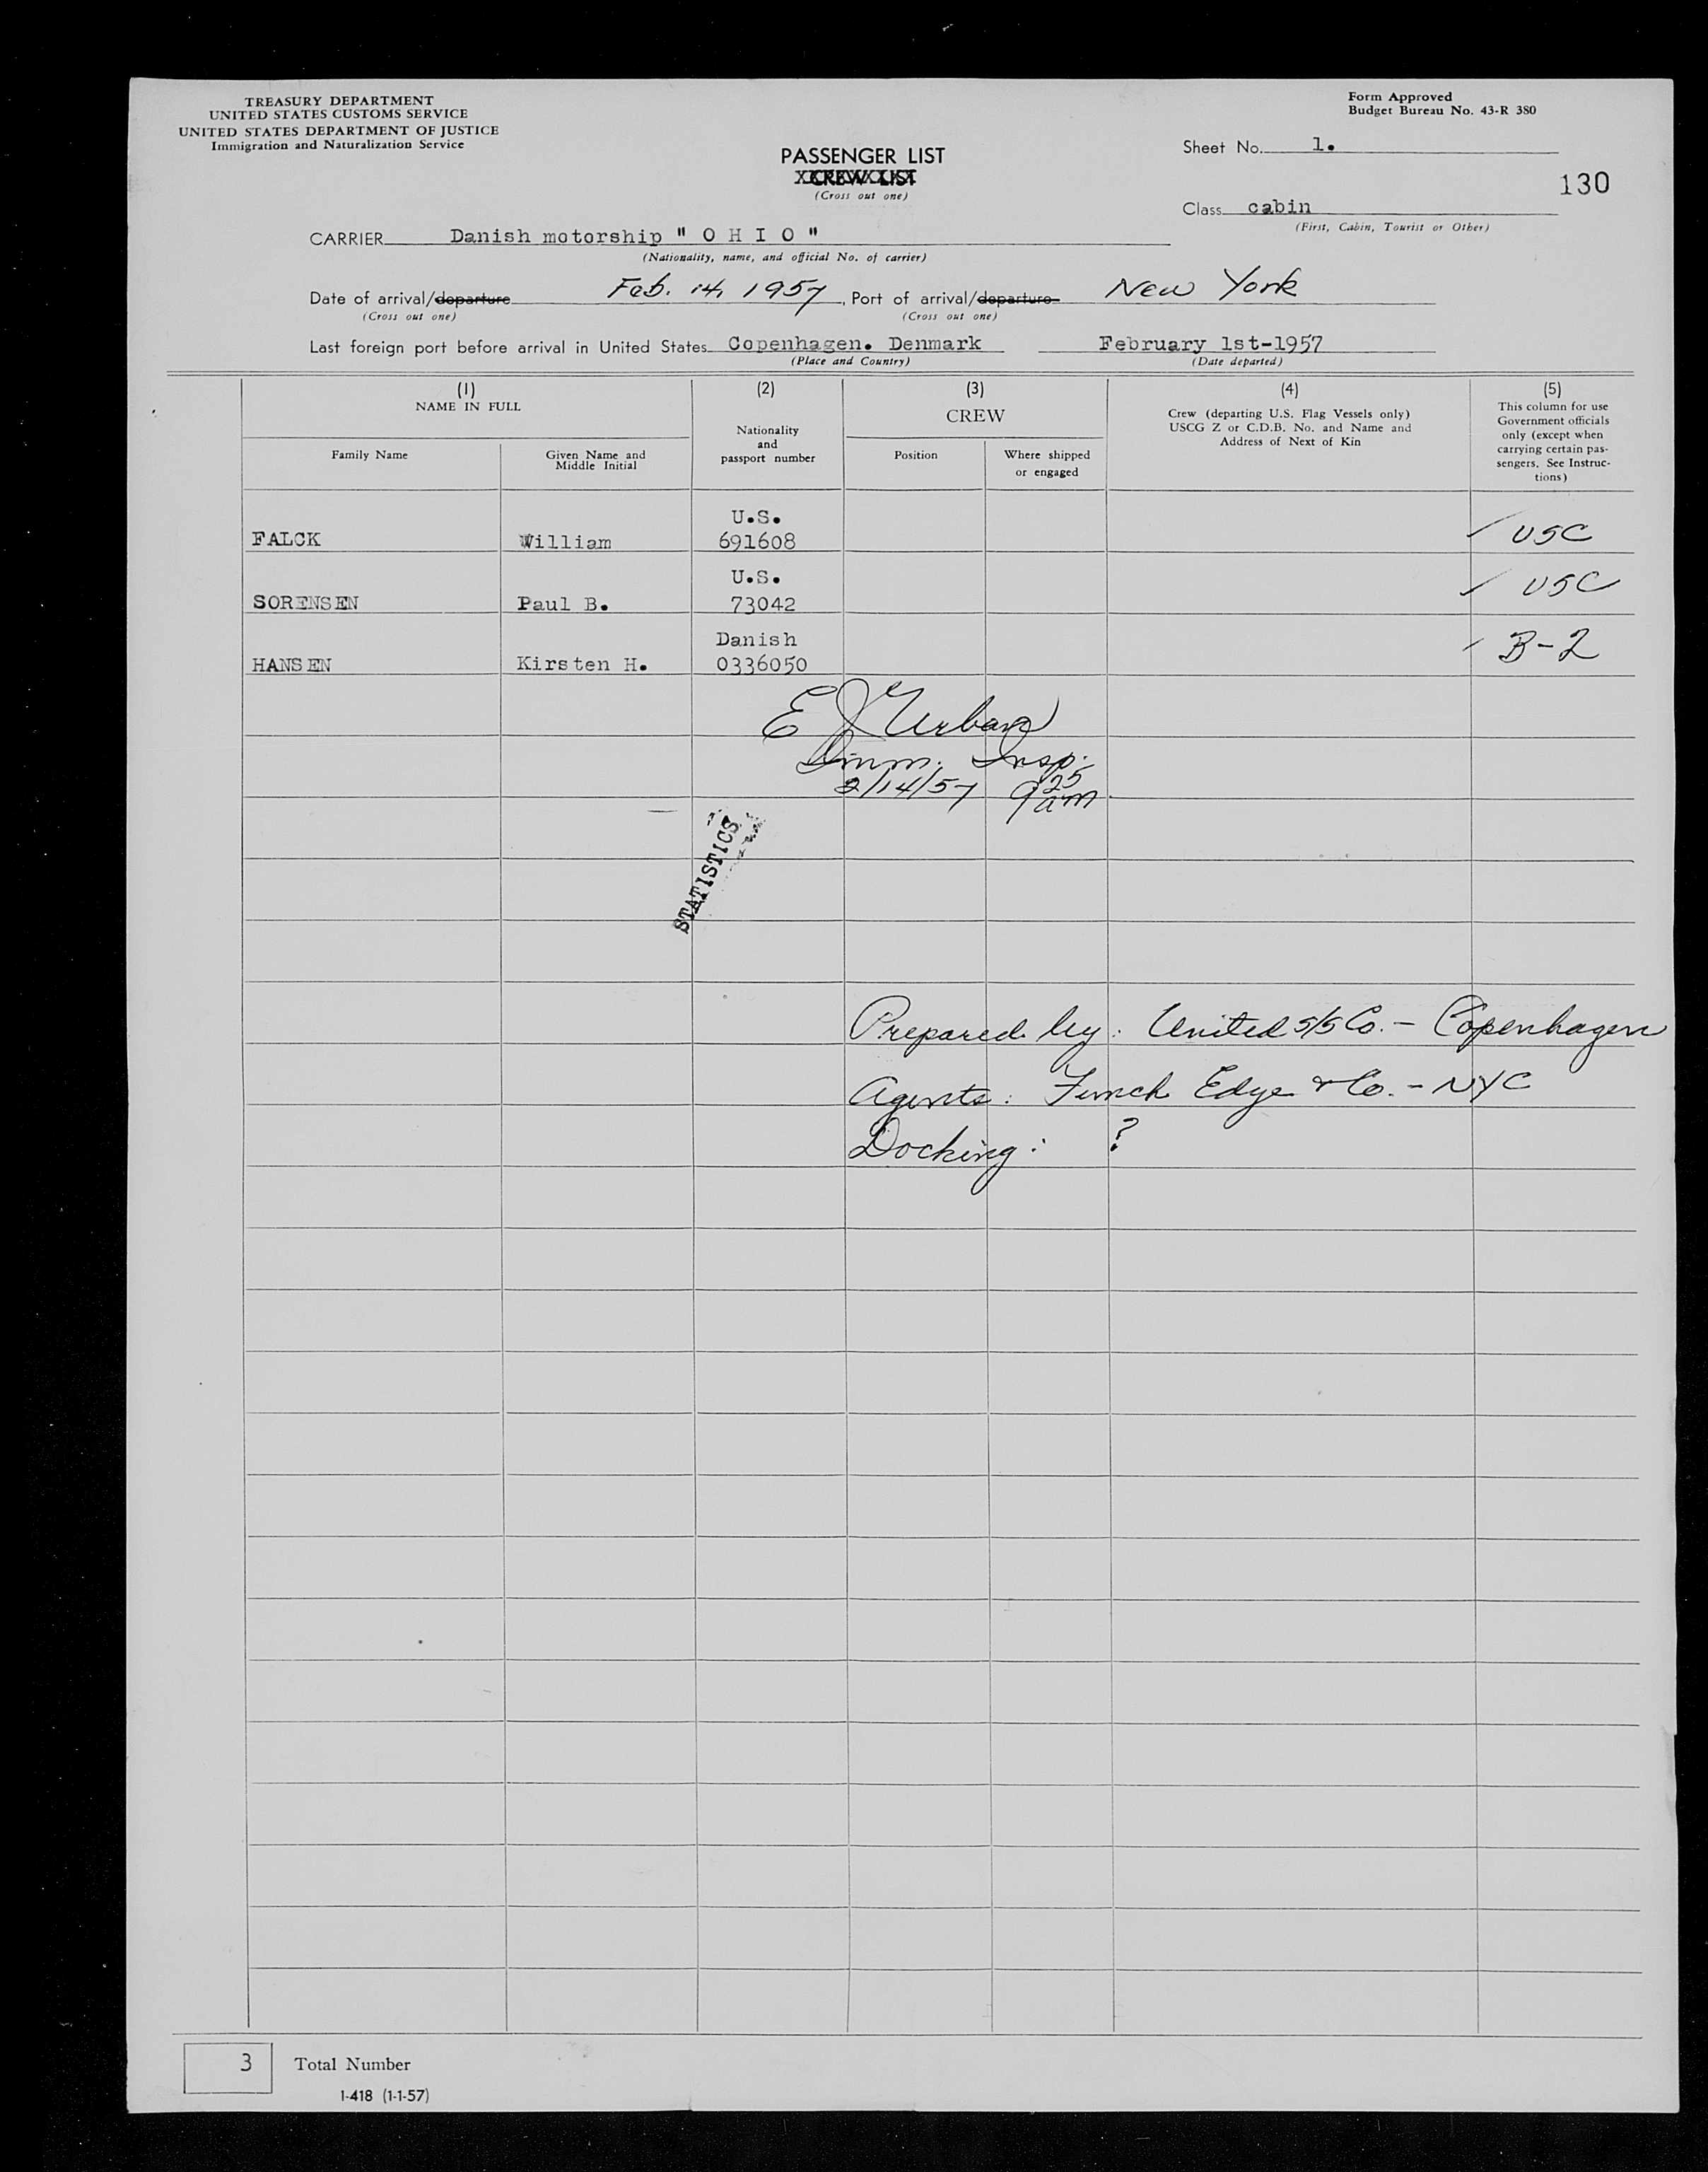 TREASURY DEPARTMENT
UNITED STATES CUSTOMS SERVICE
UNITED STATES DEPARTMENT OF JUSTICE
Immigration and Naturalization Service
Form Approved
Budget Bureau No. 43-R 380
PASSENGER LIST
CREW LIST
(Cross out one)
Sheet No. 1.
130
Class cabin
(First, Cabin, Tourist or Other)
CARRIER Danish motorship " O H I O "
(Nationality, name, and official No. of carrier)
Date of arrival/departure Feb. 14, 1957, Port of arrival/departure New York
(Cross out one) (Cross out one)
Last foreign port before arrival in United States Copenhagen. Denmark February 1st-1957
(Place and Country) (Date departed)
(1) (2) (3) (4) (5)
NAME IN FULL
Family Name
Given Name and
Middle Initial
Nationality
and
passport number
CREW
Position
Where shipped
or engaged
Crew (departing U.S. Flag Vessels only)
USCG Z or C.D.B. No. and Name and
Address of Next of Kin
This column for use
Government officials
only (except when
carrying certain pas-
sengers. See Instruc-
tions)
U.S.
FALCK William 691608 ✓ USC
U.S.
SORENSEN Paul B. 73042 ✓ USC
Danish
HANSEN Kirsten H. 0336050 ✓ B-2
E J Urban
Imm. Insp.
2/14/57 9 25 am
STATISTICS
Prepared by: United S/S Co. - Copenhagen
Agents: Funch Edye & Co. - NYC
Docking: ?
3 Total Number
I-418 (1-1-57)